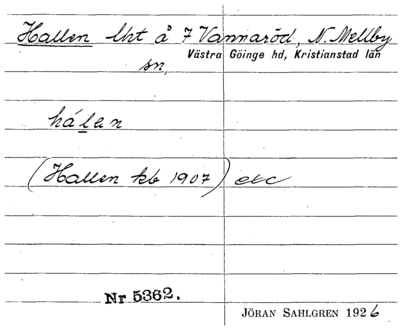 Hallen lht å 7 Vannaröd, N. Mellby
Västra Göinge hd, Kristianstad län
sn,
hálen
(Hallen kb 1907) etc
Nr 5362.
JÖRAN SAHLGREN 1926